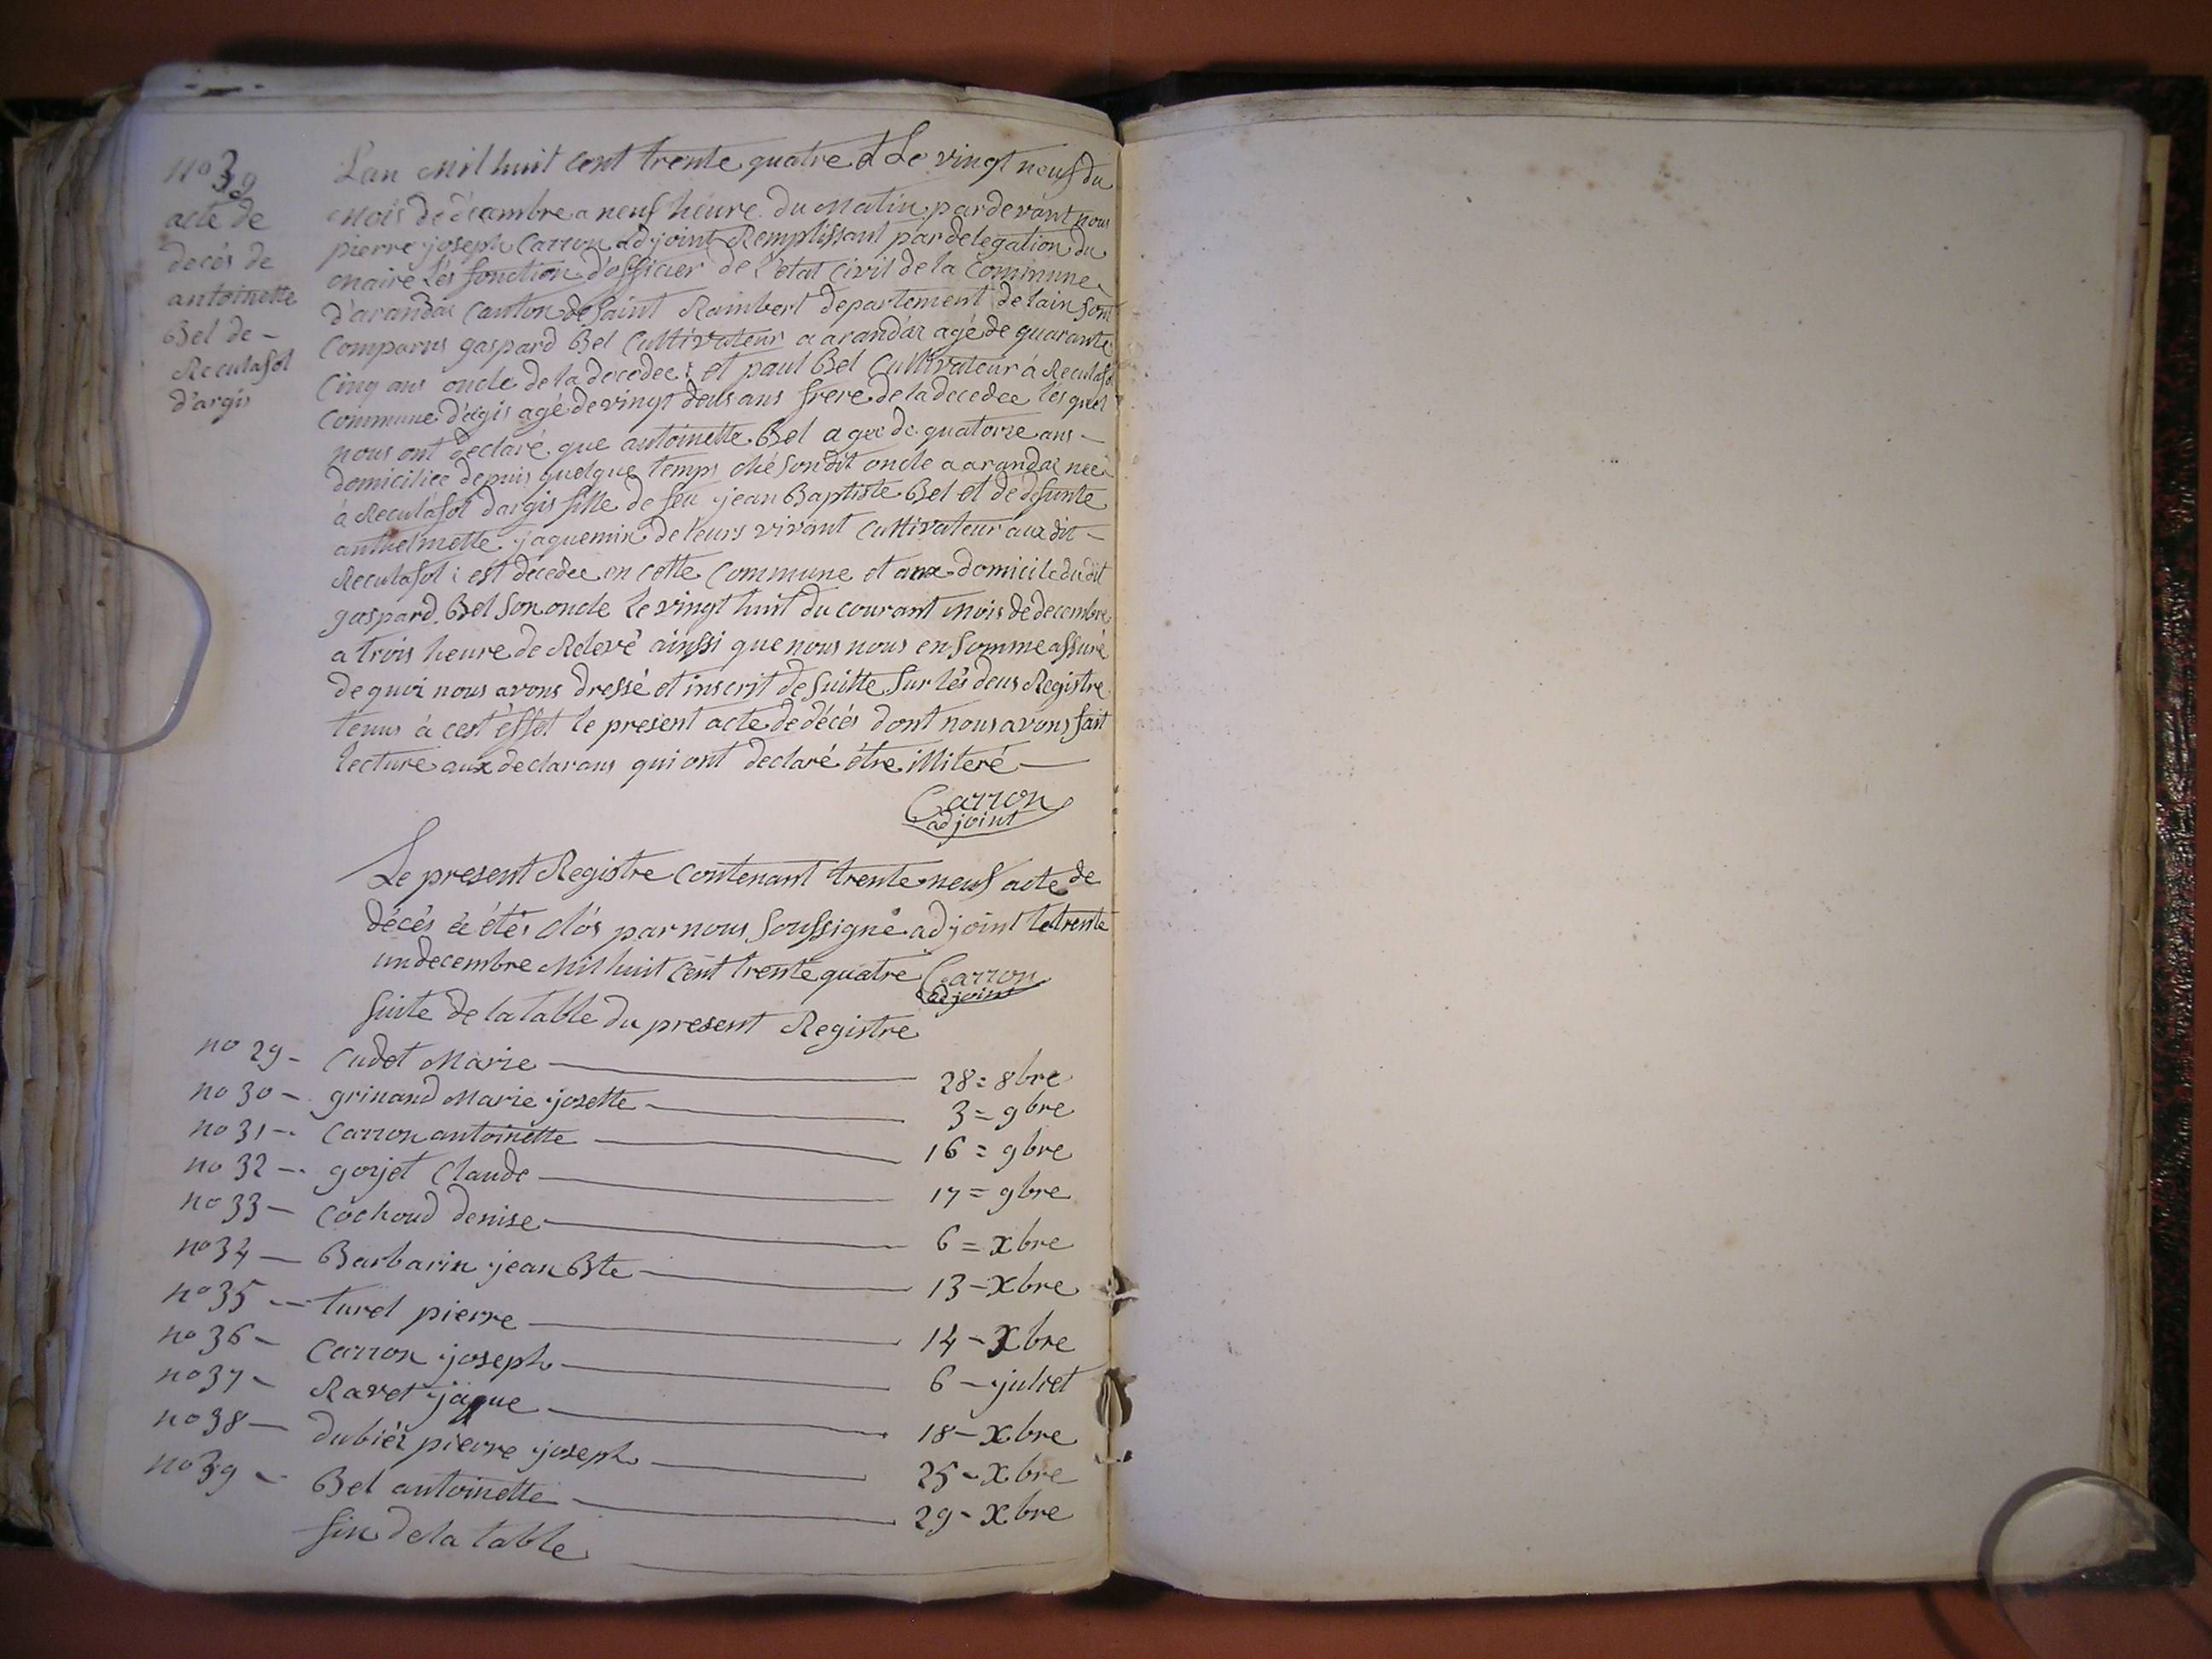 n° 39
acte de
decés de
antoinette
Bel de -
Reculafol
d'argis
L'an mil huit cent trente quatre et Le vingt neuf du
mois de decembre a neuf heure du matin pardevant nous
pierre joseph Carron adjoint Remplissant par delegation du
maire Les fonction d'officier de L'etat Civil de la Commune
d'arandas Canton de Saint Rambert departement de lain Sont
Comparus gaspard Bel Cultivateur a arandas agé de quarante
Cinq ans oncle de la decedee : et paul Bel Cultivateur à Reculafol
Commune d'argis agé de vingt deus ans frere de la decedee les quel
nous ont declaré que antoinette Bel agee de quatorze ans -
domiciliee depuis quelque temps ché Sondit oncle a arandas nee
à Reculafol dargis fille de feu jean Baptiste Bel et de defunte
anthelmette jaquemin de leurs vivant Cultivateur audit -
Reculafol : est decedee en cette Commune et aux domicile dudit
gaspard Bel Son oncle le vingt huit du courant mois de decembre
a trois heure de Relevé ainssi que nous nous en Somme assuré
de quoi nous avons dressé et inscrit de Suitte Sur lés deus Registre
tenus à cest éffet le present acte de décés dont nous avons fait
lecture aux declarans qui ont declaré être illiteré —
Carron
adjoint
Le present Registre Contenant trente neuf acte de
décés à étés Clos par nous Soussigné adjoint le trente
un decembre mil huit Cent trente quatre Carron
adjoint
Suite de la table du present Registre
n° 29 - Cudet Marie — 28 = 8bre
n° 30 - grinand Marie josette — 3 = 9bre
n° 31 - Carron antoinette — 16 = 9bre
n° 32 - gorjet Claude — 17 = 9bre
n° 33 - Cochoud denise — 6 = xbre
n° 34 - Barbarin jean Bte — 13 - xbre
n° 35 - turel pierre — 14 - xbre
n° 36 - Carron joseph — 6 - juliet
n° 37 - Ravet jaque — 18 - xbre
n° 38 - dubiéz pierre joseph — 25 - xbre
n° 39 - Bel antoinette — 29 - xbre
fin de la table